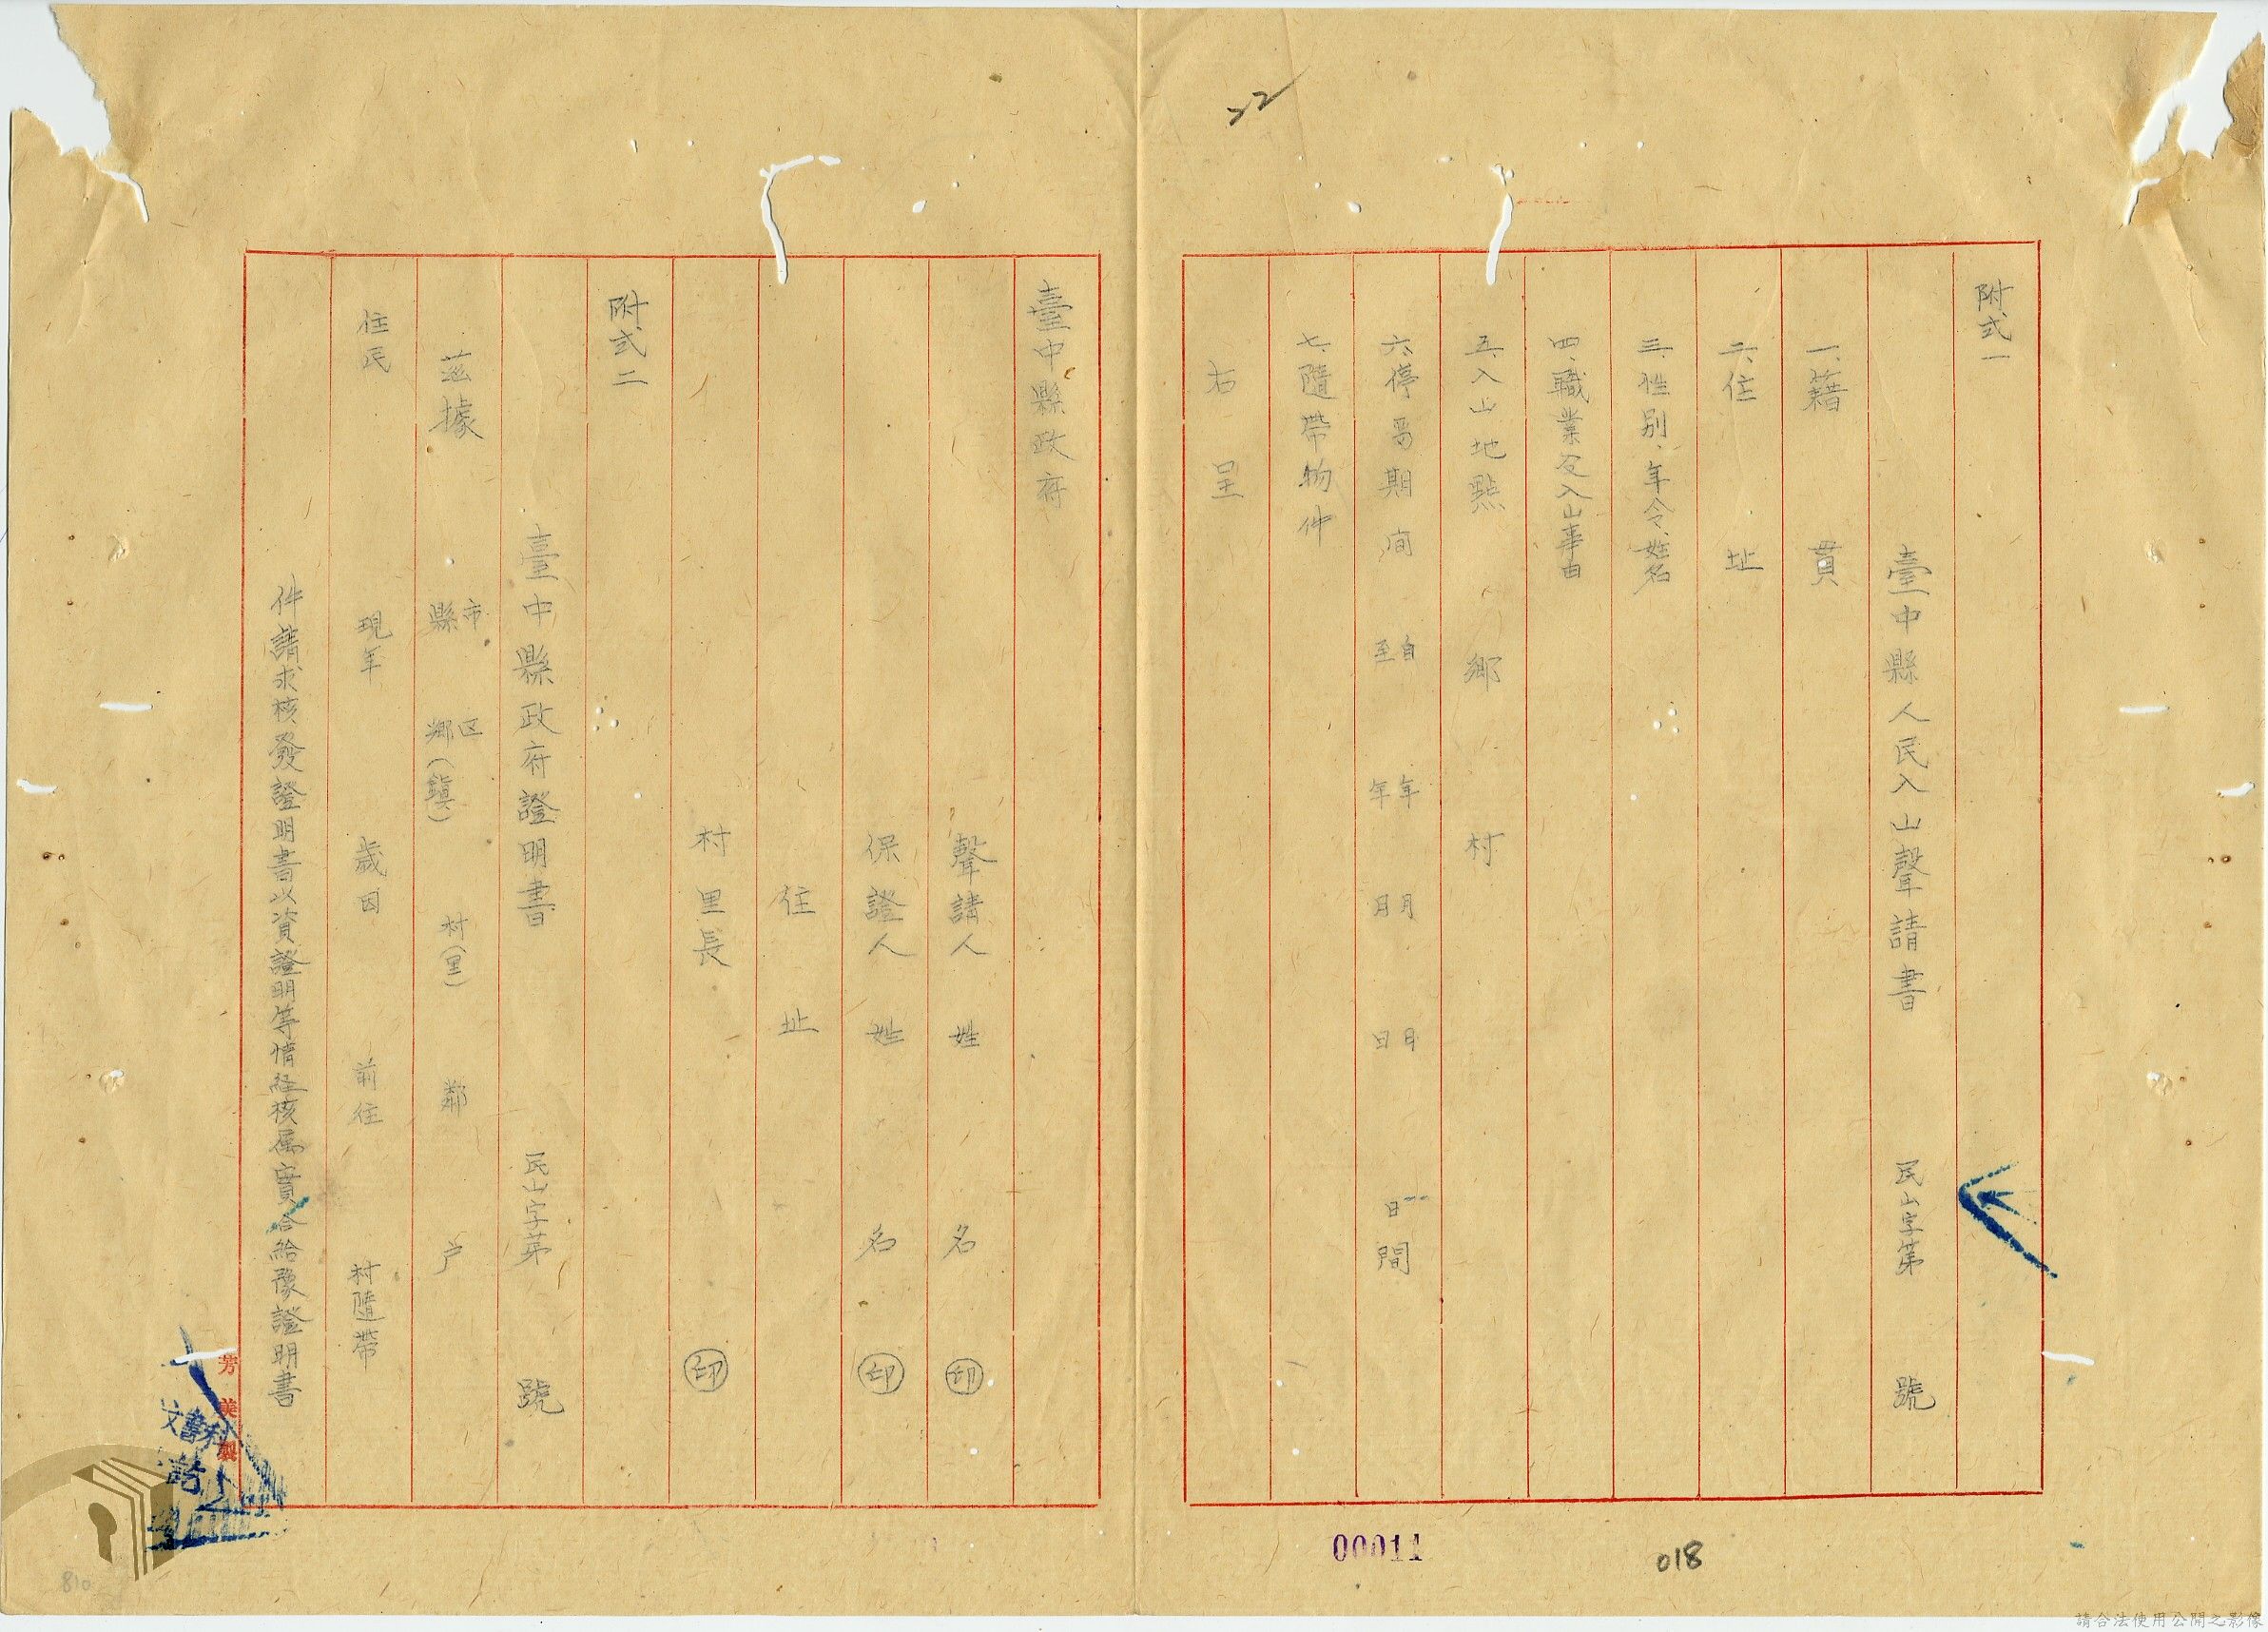 附式一
臺中縣人民入山聲請書 民山字第 號
一、籍 貫
二、住 址
三、性別、年令、姓名
四、職業及入山事由
五、入山地點 鄉 村
六、停畱期间 自 年 月 日
至 年 月 日 日間
七、隨帶物件
右 呈
臺中縣政府
聲請人 姓 名 印
保證人 姓 名 印
住 址
村里長 印
附式二
臺中縣政府證明書 民山字第 號
茲據 市縣 区鄉(鎮) 村(里) 鄰 户
住民 現年 歲因 前往 村隨帶
件請求核發證明書以資證明等情経核属實合給豫證明書
芳美製
文書科
22
00011
018
810
請合法使用公開之影像